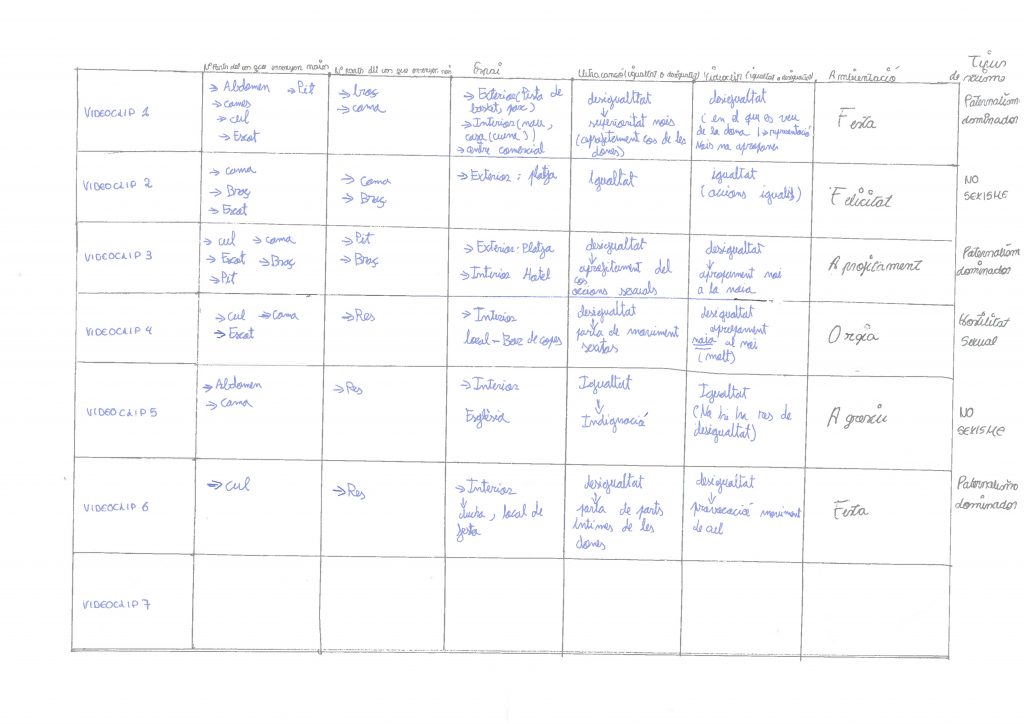 Nº Parts del cos que ensenyen noies
Nº parts del cos que ensenyen nois
Espai
Lletra cançó (igualtat o desigualtat)
Videoclip (igualtat o desigualtat)
Ambientació
Tipus de sexisme
VIDEOCLIP 1
→ Abdomen → Pit
→ cames
→ cul
→ Escot
→ braç
→ cama
→ Exterior (Pista de
basket, parc)
→ Interior (nau,
casa (cuina))
→ centre comercial
desigualtat
↓
superioritat nois
(aprofitament cos de les
dones)
desigualtat
(en el que es veu
de la dona → representació
Nois
Festa
Paternalism
dominador
VIDEOCLIP 2
→ cama
→ Braç
→ Escot
→ Cama
→ Braç
→ Exterior: platja
Igualtat
igualtat
(accions iguals)
Felicitat
NO
SEXISME
VIDEOCLIP 3
→ cul → cama
→ Escot → Braç
→ Pit
→ Pit
→ Braç
→ Exterior: Platja
→ Interior Hotel
desigualtat
↓
aprofitament del
cos
accions sexuals
desigualtat
↓
aprofitament noi
a la noia
Aprofitament
Paternalism
dominador
VIDEOCLIP 4
→ cul → Cama
→ Escot
→ Res
→ Interior
local - Bar de copes
desigualtat
↓
parla de moviment
sexistas
desigualtat
aprofitament
noia al noi
(molt)
Orgia
Hostilitat
Sexual
VIDEOCLIP 5
→ Abdomen
→ Cama
→ Res
→ Interior
Església
Igualtat
↓
Indignació
Igualtat
(No hi ha res de
desigualtat)
Agreuju
NO
SEXISME
VIDEOCLIP 6
→ cul
→ Res
→ Interior
↓
dutxa, local de
festa
desigualtat
↓
parla de parts
íntimes de les
dones
desigualtat
↓
provocació moviment
de cul
Festa
Paternalismo
dominador
VIDEOCLIP 7